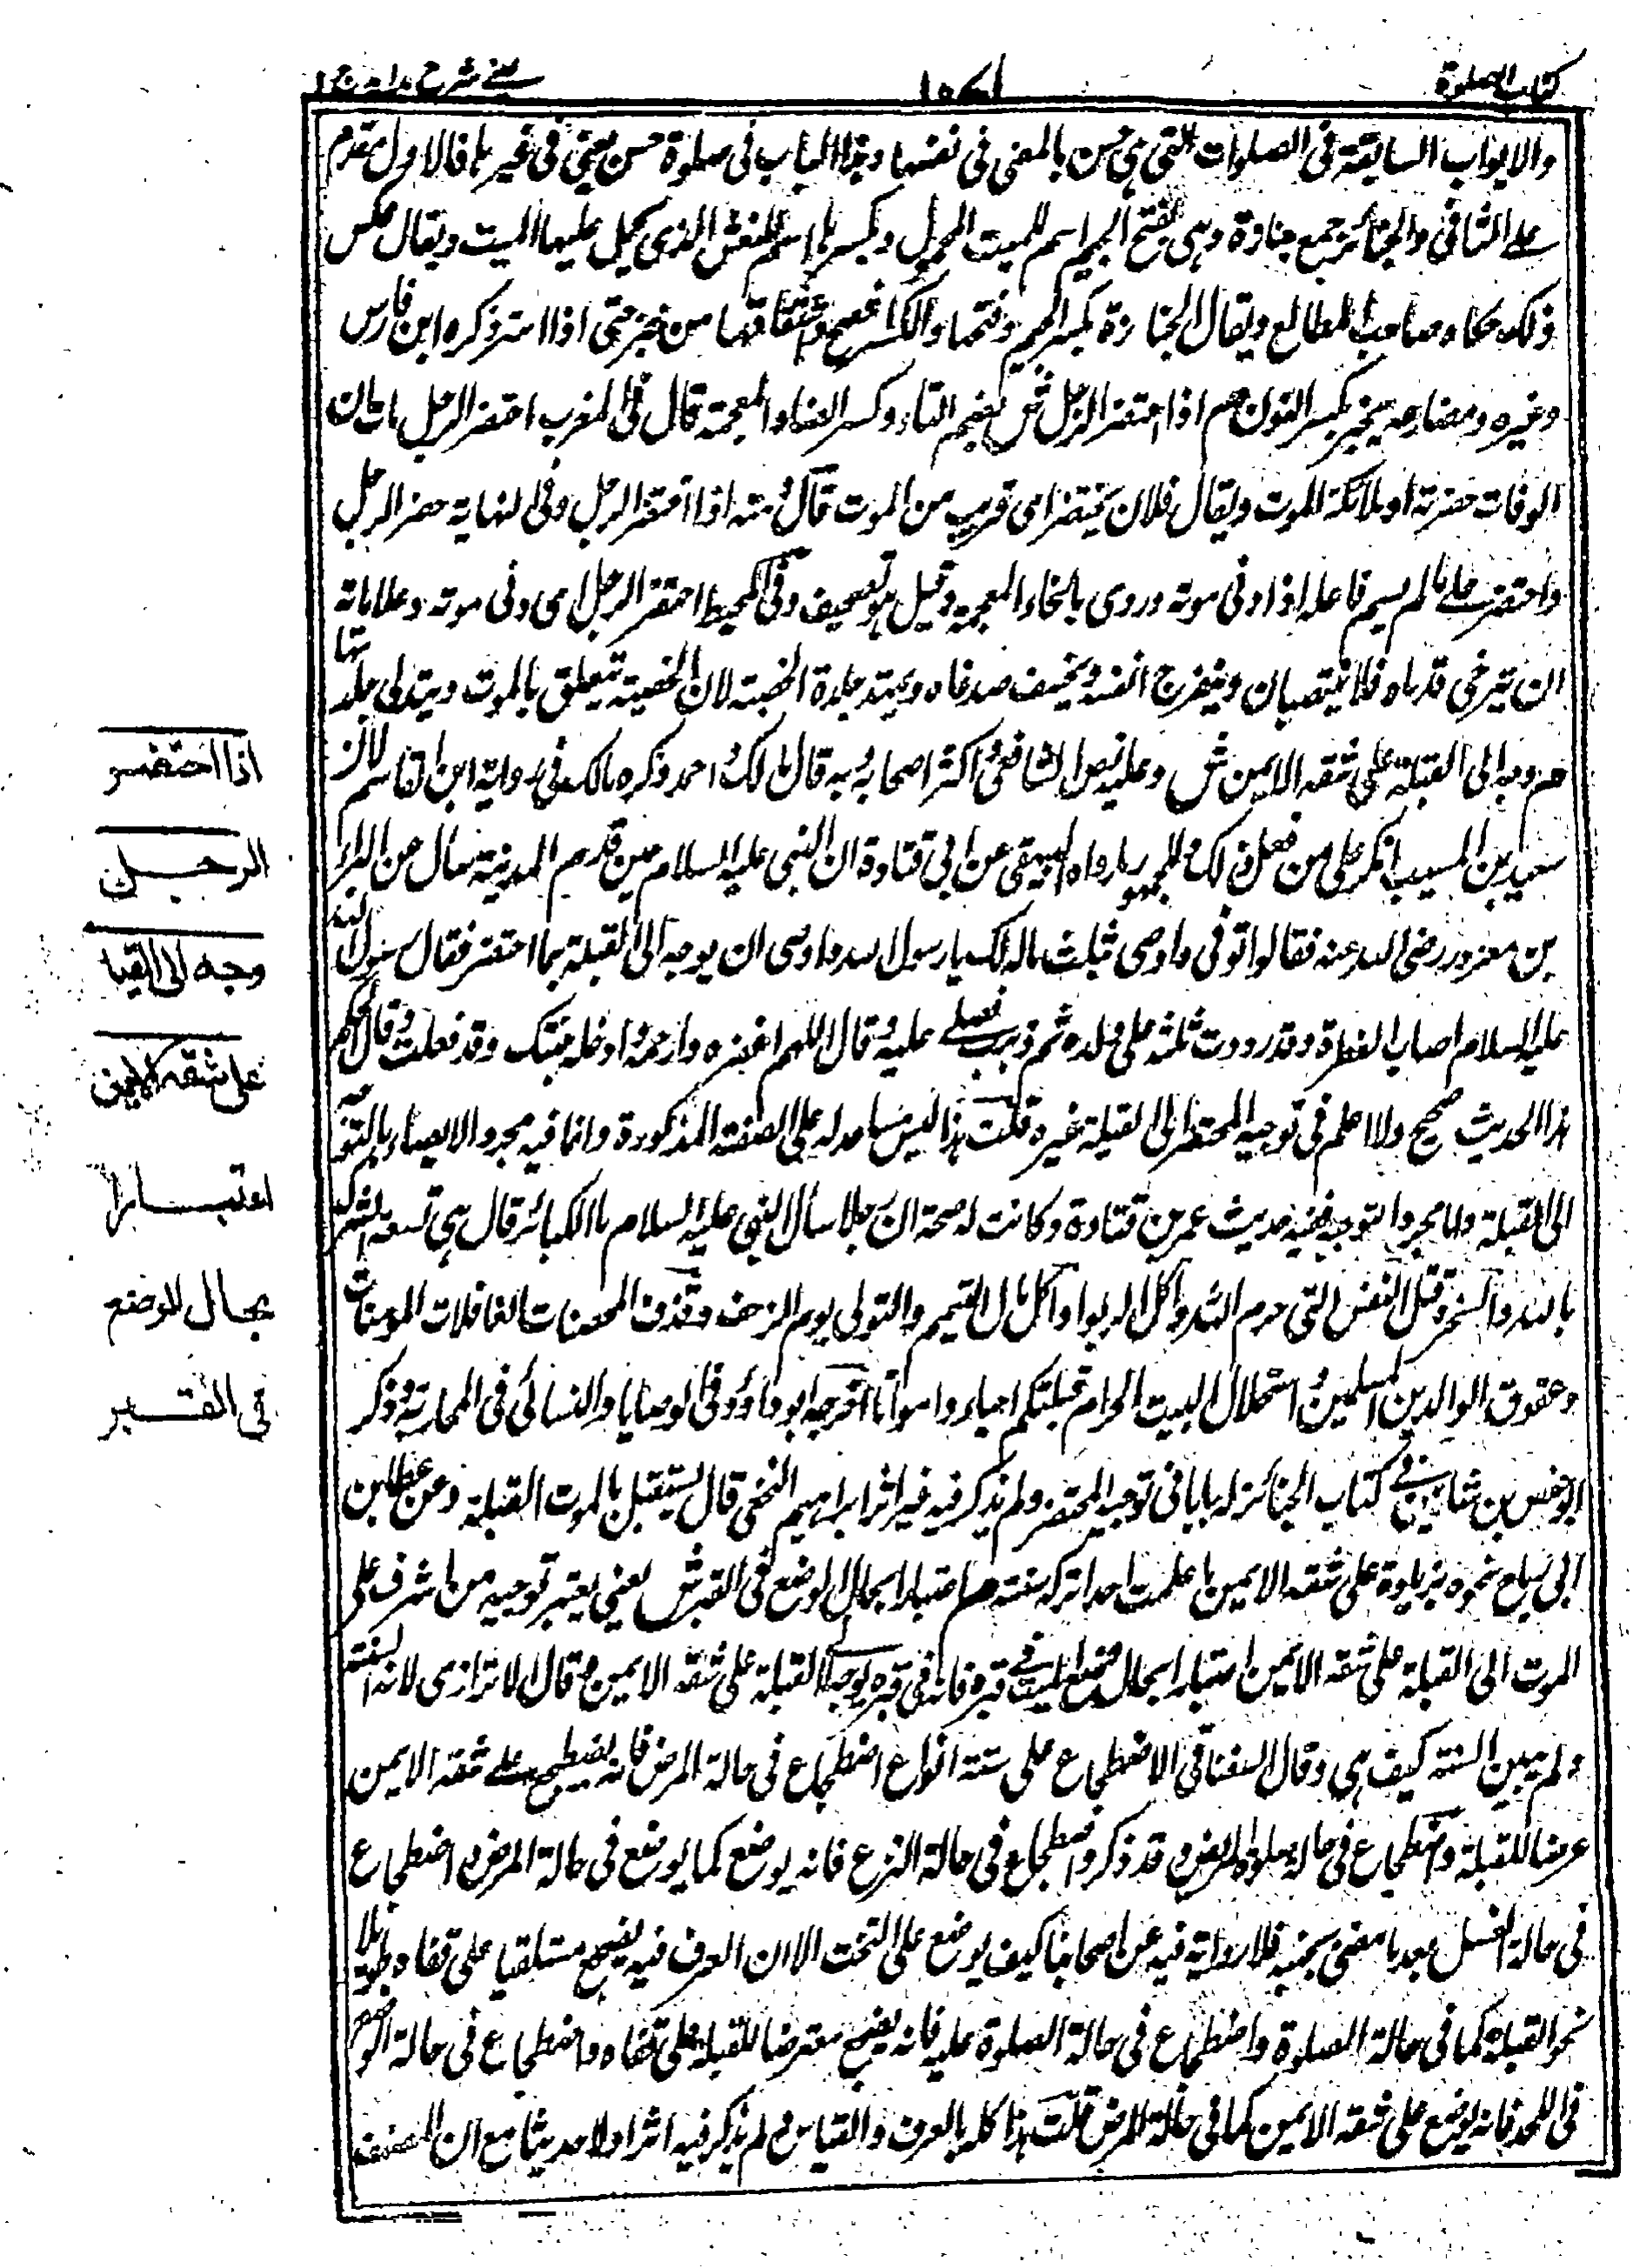 كتاب الصلوة
عينى شرح هدايه ج ١
والابواب السابقة فى الصلوات التى هى حسن بالمعنى فى نفسها وهذا الباب فى صلوة حسن بمعنى فى غيرها فالاول مقدم
على الثانى والجنائز جمع جنازة وهى بفتح الجيم اسم للميت المحمول وبكسرها اسم للنعش الذى يحمل عليها الميت ويقال عكس
ذلك حكاه صاحب المطالع ويقال الجنازة بكسر الجيم وفتحها والكسر افصح واشتقاقها من جنز حتى اذا استر ذكره ابن فارس
وغيره ومضارعه يجنز بكسر النون هم اذا احتضر الرجل ش بضم التاء وكسر الضاد المعجمة قال فى المغرب احتضر الرجل مات لان
الوفات حضرته او ملائكة الموت ويقال فلان يحتضر اى قريب من الموت قال ومنه اذا احتضر الرجل وفى النهاية حضر الرجل
واحتضر على مالم يسم فاعله اذا دنى موته وروى بالخاء المعجمة وقيل هو تصحيف وفى المحيط احتضر الرجل اى دنى موته وعلاماته
ان يترخى قدماه فلا ينتصبان وينفرج انفه ويخسف صدغاه ويمتد جلدة الخصية لان الخصية تتعلق بالموت ويتدلى جلدتها
هم وجه الى القبلة على شقه الايمن ش وعليه نص الشافعى واكثر اصحابه وبه قال مالك واحمد وذكره مالك فى رواية ابن القاسم لان
سعيد بن المسيب انكر على من فعل ذلك وللجمهور ما رواه البيهقى عن ابى قتادة ان النبى عليه السلام حين قدم المدينة سأل عن البراء
بن معرور رضى الله عنه فقالوا توفى واوصى بثلث ماله لك يا رسول الله واوصى ان يوجه الى القبلة لما احتضر فقال رسول الله
عليه السلام اصاب الفطرة وقد رددت ثلثه على ولده ثم ذهب فصلى عليه وقال اللهم اغفره وارحمه وادخله جنتك وقد فعلت وقال الحاكم
هذا الحديث صحيح ولا اعلم فى توجيه المحتضر الى القبلة غيره قلت هذا ليس مساعد له على الصفة المذكورة وانما فيه مجرد الايصاء بالتوجه
الى القبلة واما مجرد التوجيه ففيه حديث عمر بن قتادة وكانت له صحبة ان رجلا سأل النبى عليه السلام ما الكبائر قال هى تسعة الشرك
بالله والسحر وقتل النفس التى حرم الله واكل الربوا واكل مال اليتيم والتولى يوم الزحف وقذف المحصنات الغافلات المومنات
وعقوق الوالدين المسلمين واستحلال البيت الحرام قبلتكم احياء وامواتا اخرجه ابو داؤد فى الوصايا والنسائى فى المحاربة وذكر
ابو حفص بن شاهين فى كتاب الجنائز له بابا فى توجيه المحتضر ولم يذكر فيه غير اثر ابراهيم النخعى قال يستقبل بالموت القبلة وعن عطا بن
ابى رباح نحوه بزيادة على شقه الايمن ما علمت احدا تركه سنته هم اعتبارا بحال الوضع فى القبر ش يعنى يعتبر توجيه من اشرف على
الموت الى القبلة على شقه الايمن اعتبارا بحال وضع الميت فى قبره فانه فى قبره يوجه الى القبلة على شقه الايمن م قال الاترازى لانه السنة
ولم يبين السنة كيف هى وقال السغناقى الاضطجاع على ستة انواع اضطجاع فى حالة المرض فانه يضطجع على شقه الايمن
عرضا للقبلة واضطجاع فى حالة صلوة المريض وقد ذكر واضطجاع فى حالة النزع فانه يوضع كما يوضع فى حالة المرض واضطجاع
فى حالة الغسل بعد ما مضى نحبه فلا رواية فيه عن اصحابنا كيف يوضع على التخت الا ان العرف فيه يضجع مستلقيا على قفاه طولا
نحو القبلة كما فى حالة الصلوة واضطجاع فى حالة الصلوة عليه فانه يضجع معترضا للقبلة على قفاه واضطجاع فى حالة الوضع
فى اللحد فانه يوضع على شقه الايمن كما فى حالة المرض قلت هذا كله بالعرف والقياس ولم يذكر فيه اثرا ولا حديثا مع ان المصنف
اذا احتضر
الرجل
وجه الى القبلة
على شقه الايمن
اعتبارا
بحال الوضع
فى القبر